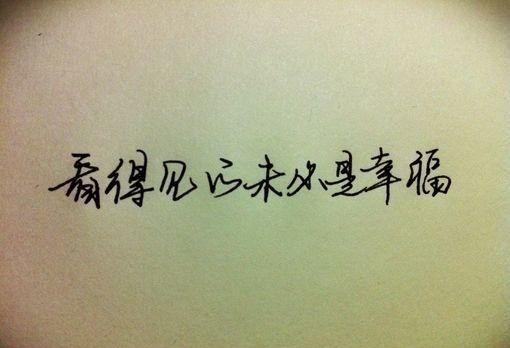 看得见的未来是幸福